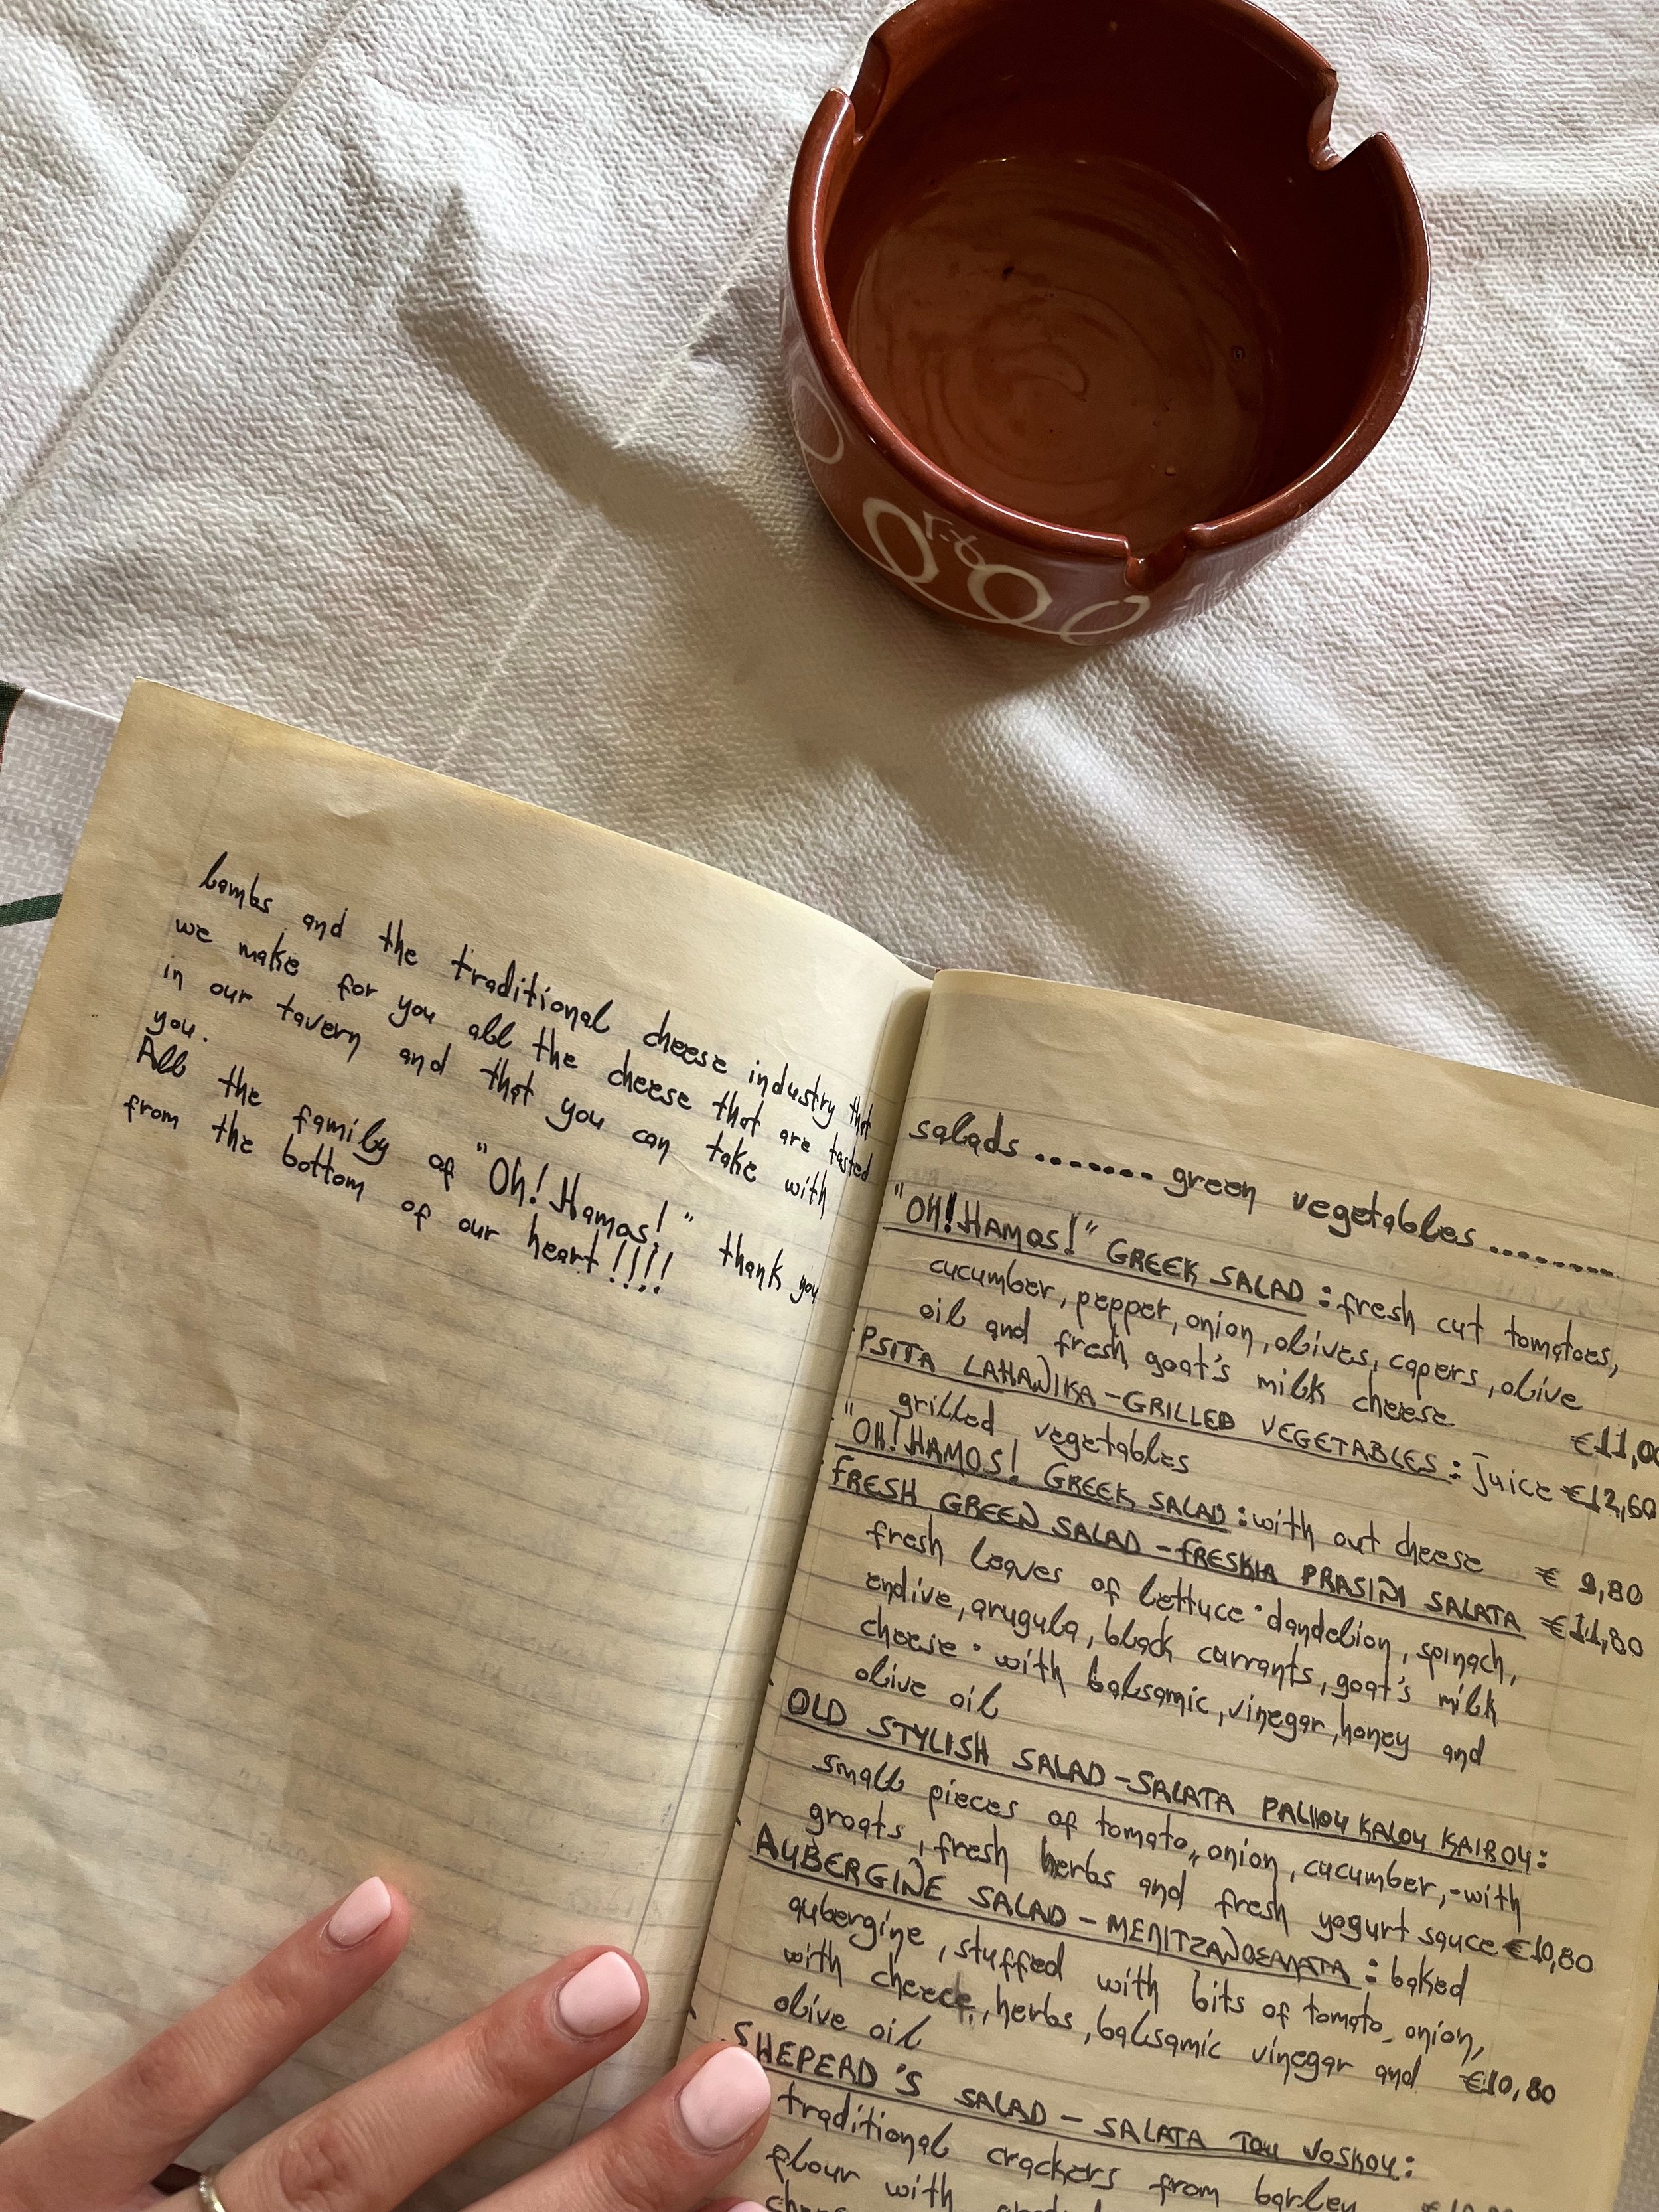 lambs and the traditional cheese industry that
we make for you all the cheese that are tasted
in our tavern and that you can take with
you.
All the family of "Oh! Hamos!" thank you
from the bottom of our heart!!!!
salads ........ green vegetables .........
"OH! HAMOS!" GREEK SALAD : fresh cut tomatoes,
cucumber, pepper, onion, olives, capers, olive
oil and fresh goat's milk cheese €11,00
PSITA LAHANIKA - GRILLED VEGETABLES : juice
grilled vegetables €12,60
"OH! HAMOS! GREEK SALAD : with out cheese € 9,80
FRESH GREEN SALAD - FRESKIA PRASINI SALATA €11,80
fresh leaves of lettuce · dandelion, spinach,
endive, arugula, black currants, goat's milk
cheese · with balsamic, vinegar, honey and
olive oil
OLD STYLISH SALAD - SALATA PALIOU KALOU KAIROU:
small pieces of tomato, onion, cucumber, - with
groats, fresh herbs and fresh yogurt sauce €10,80
AUBERGINE SALAD - : baked
aubergine, stuffed with bits of tomato, onion,
with cheece, herbs, balsamic vinegar and
olive oil €10,80
SHEPERD'S SALAD - SALATA TOU VOSKOU:
traditional crackers from barley
flour with